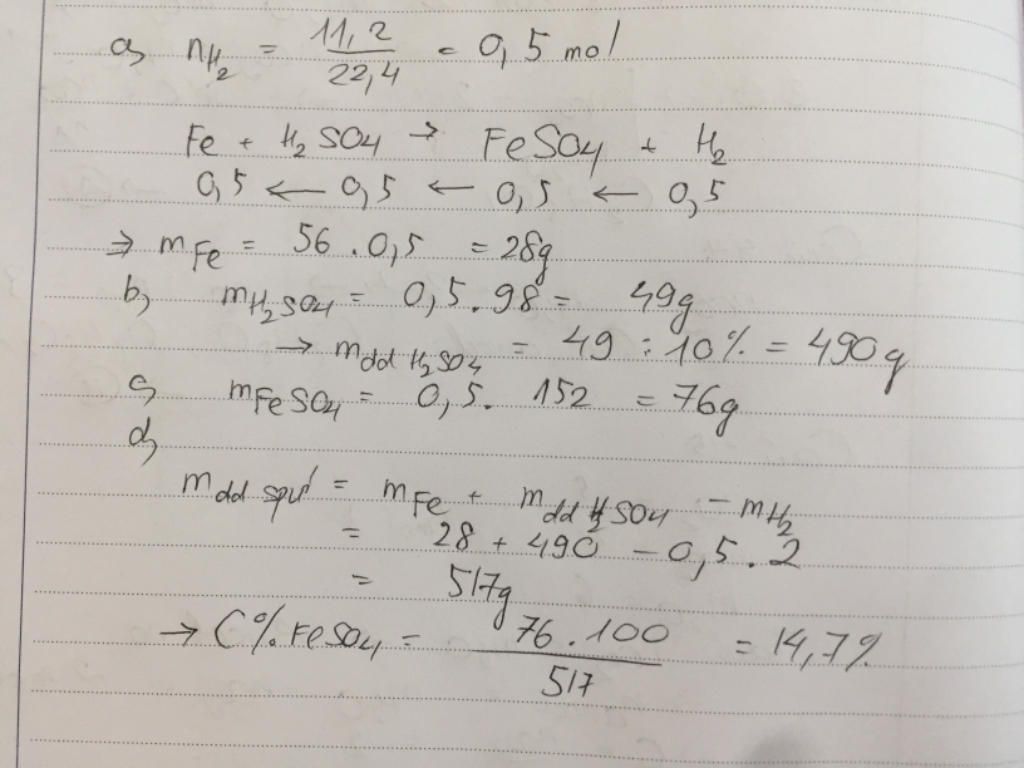 a, nH2 = 11,2 / 22,4 = 0,5 mol
Fe + H2SO4 → FeSO4 + H2
0,5 ← 0,5 ← 0,5 ← 0,5
⇒ mFe = 56 . 0,5 = 28g
b, mH2SO4 = 0,5 . 98 = 49g
→ mdd H2SO4 = 49 : 10% = 490g
c, mFeSO4 = 0,5 . 152 = 76g
d,
mdd spứ = mFe + mdd H2SO4 - mH2
= 28 + 490 - 0,5 . 2
= 517g
→ C% FeSO4 = 76 . 100 / 517 = 14,7%